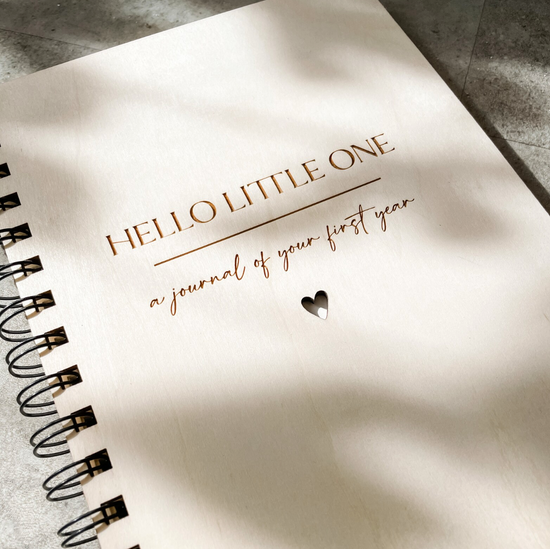 HELLO LITTLE ONE
a journal of your first year